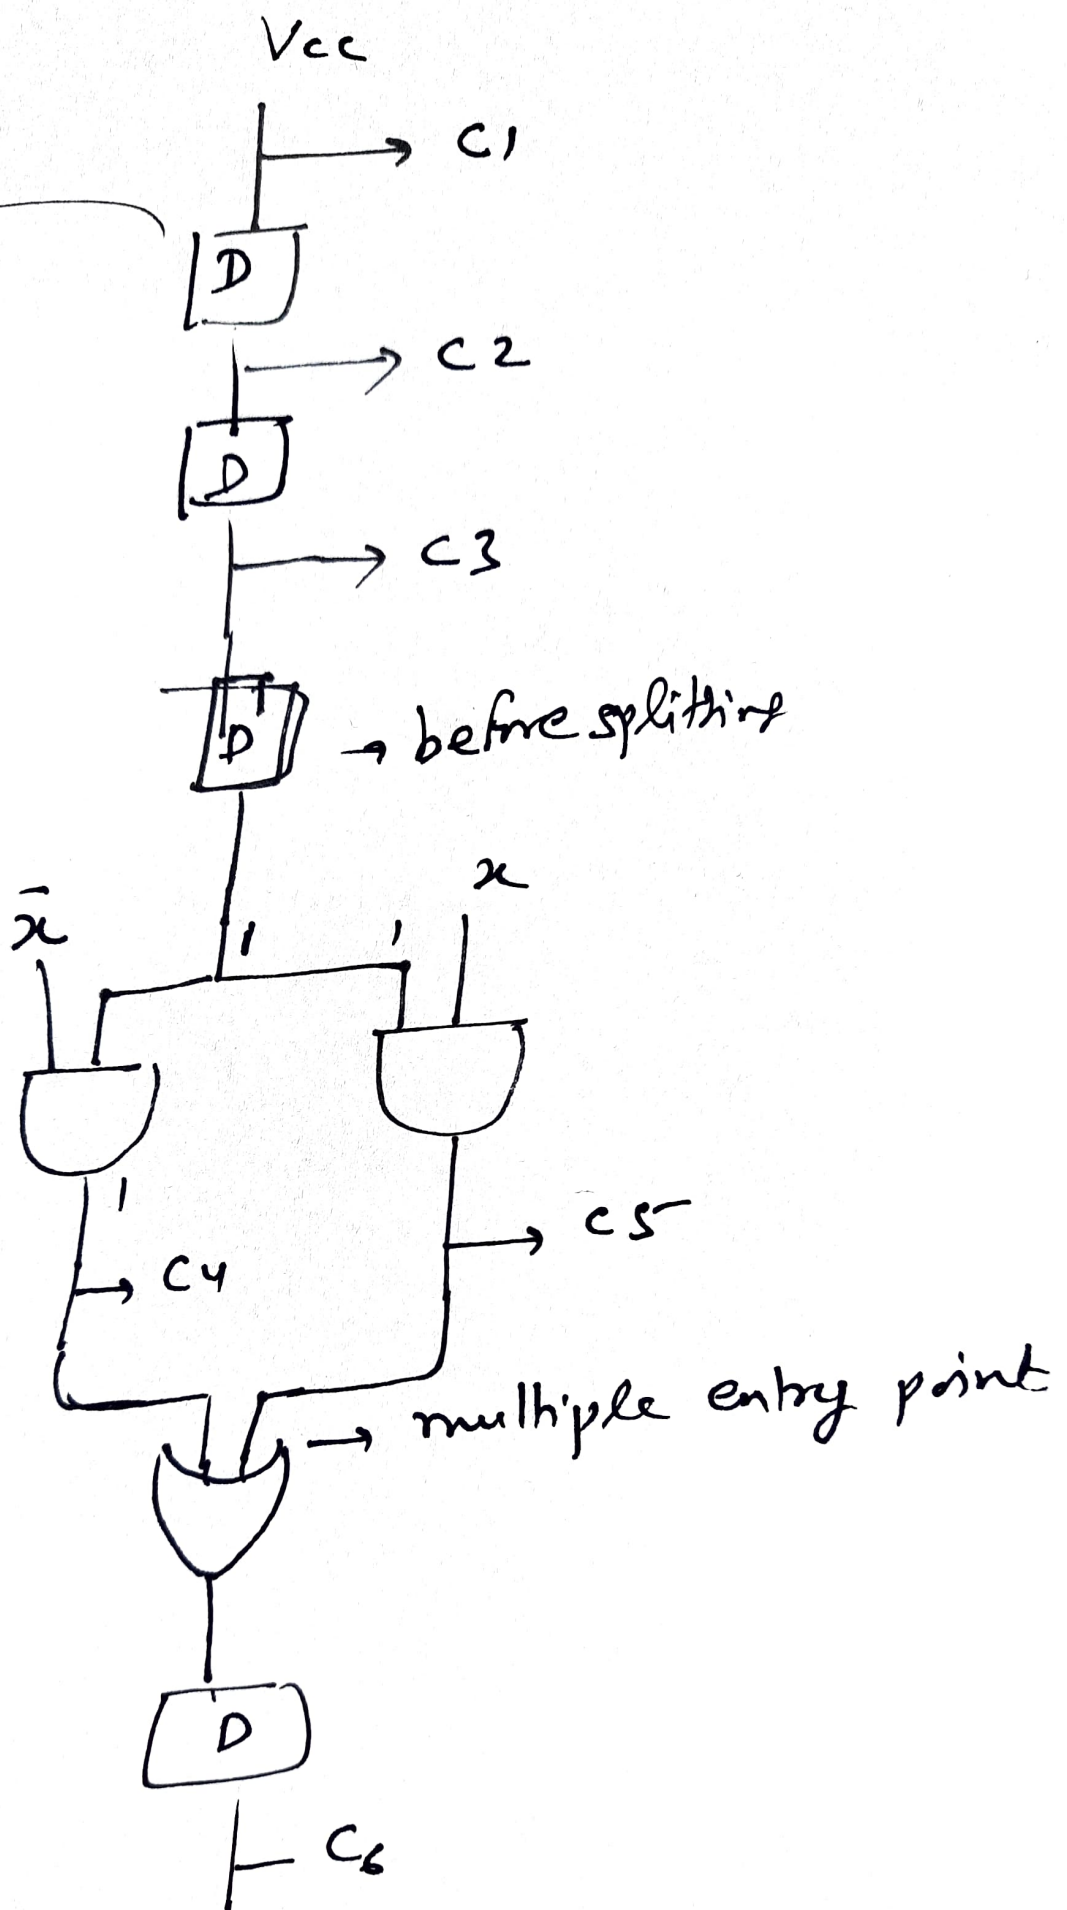 Vcc
C1
D
C2
D
C3
D → before splitting
x
x̄
1 1
1
C5
C4
→ multiple entry point
D
C6